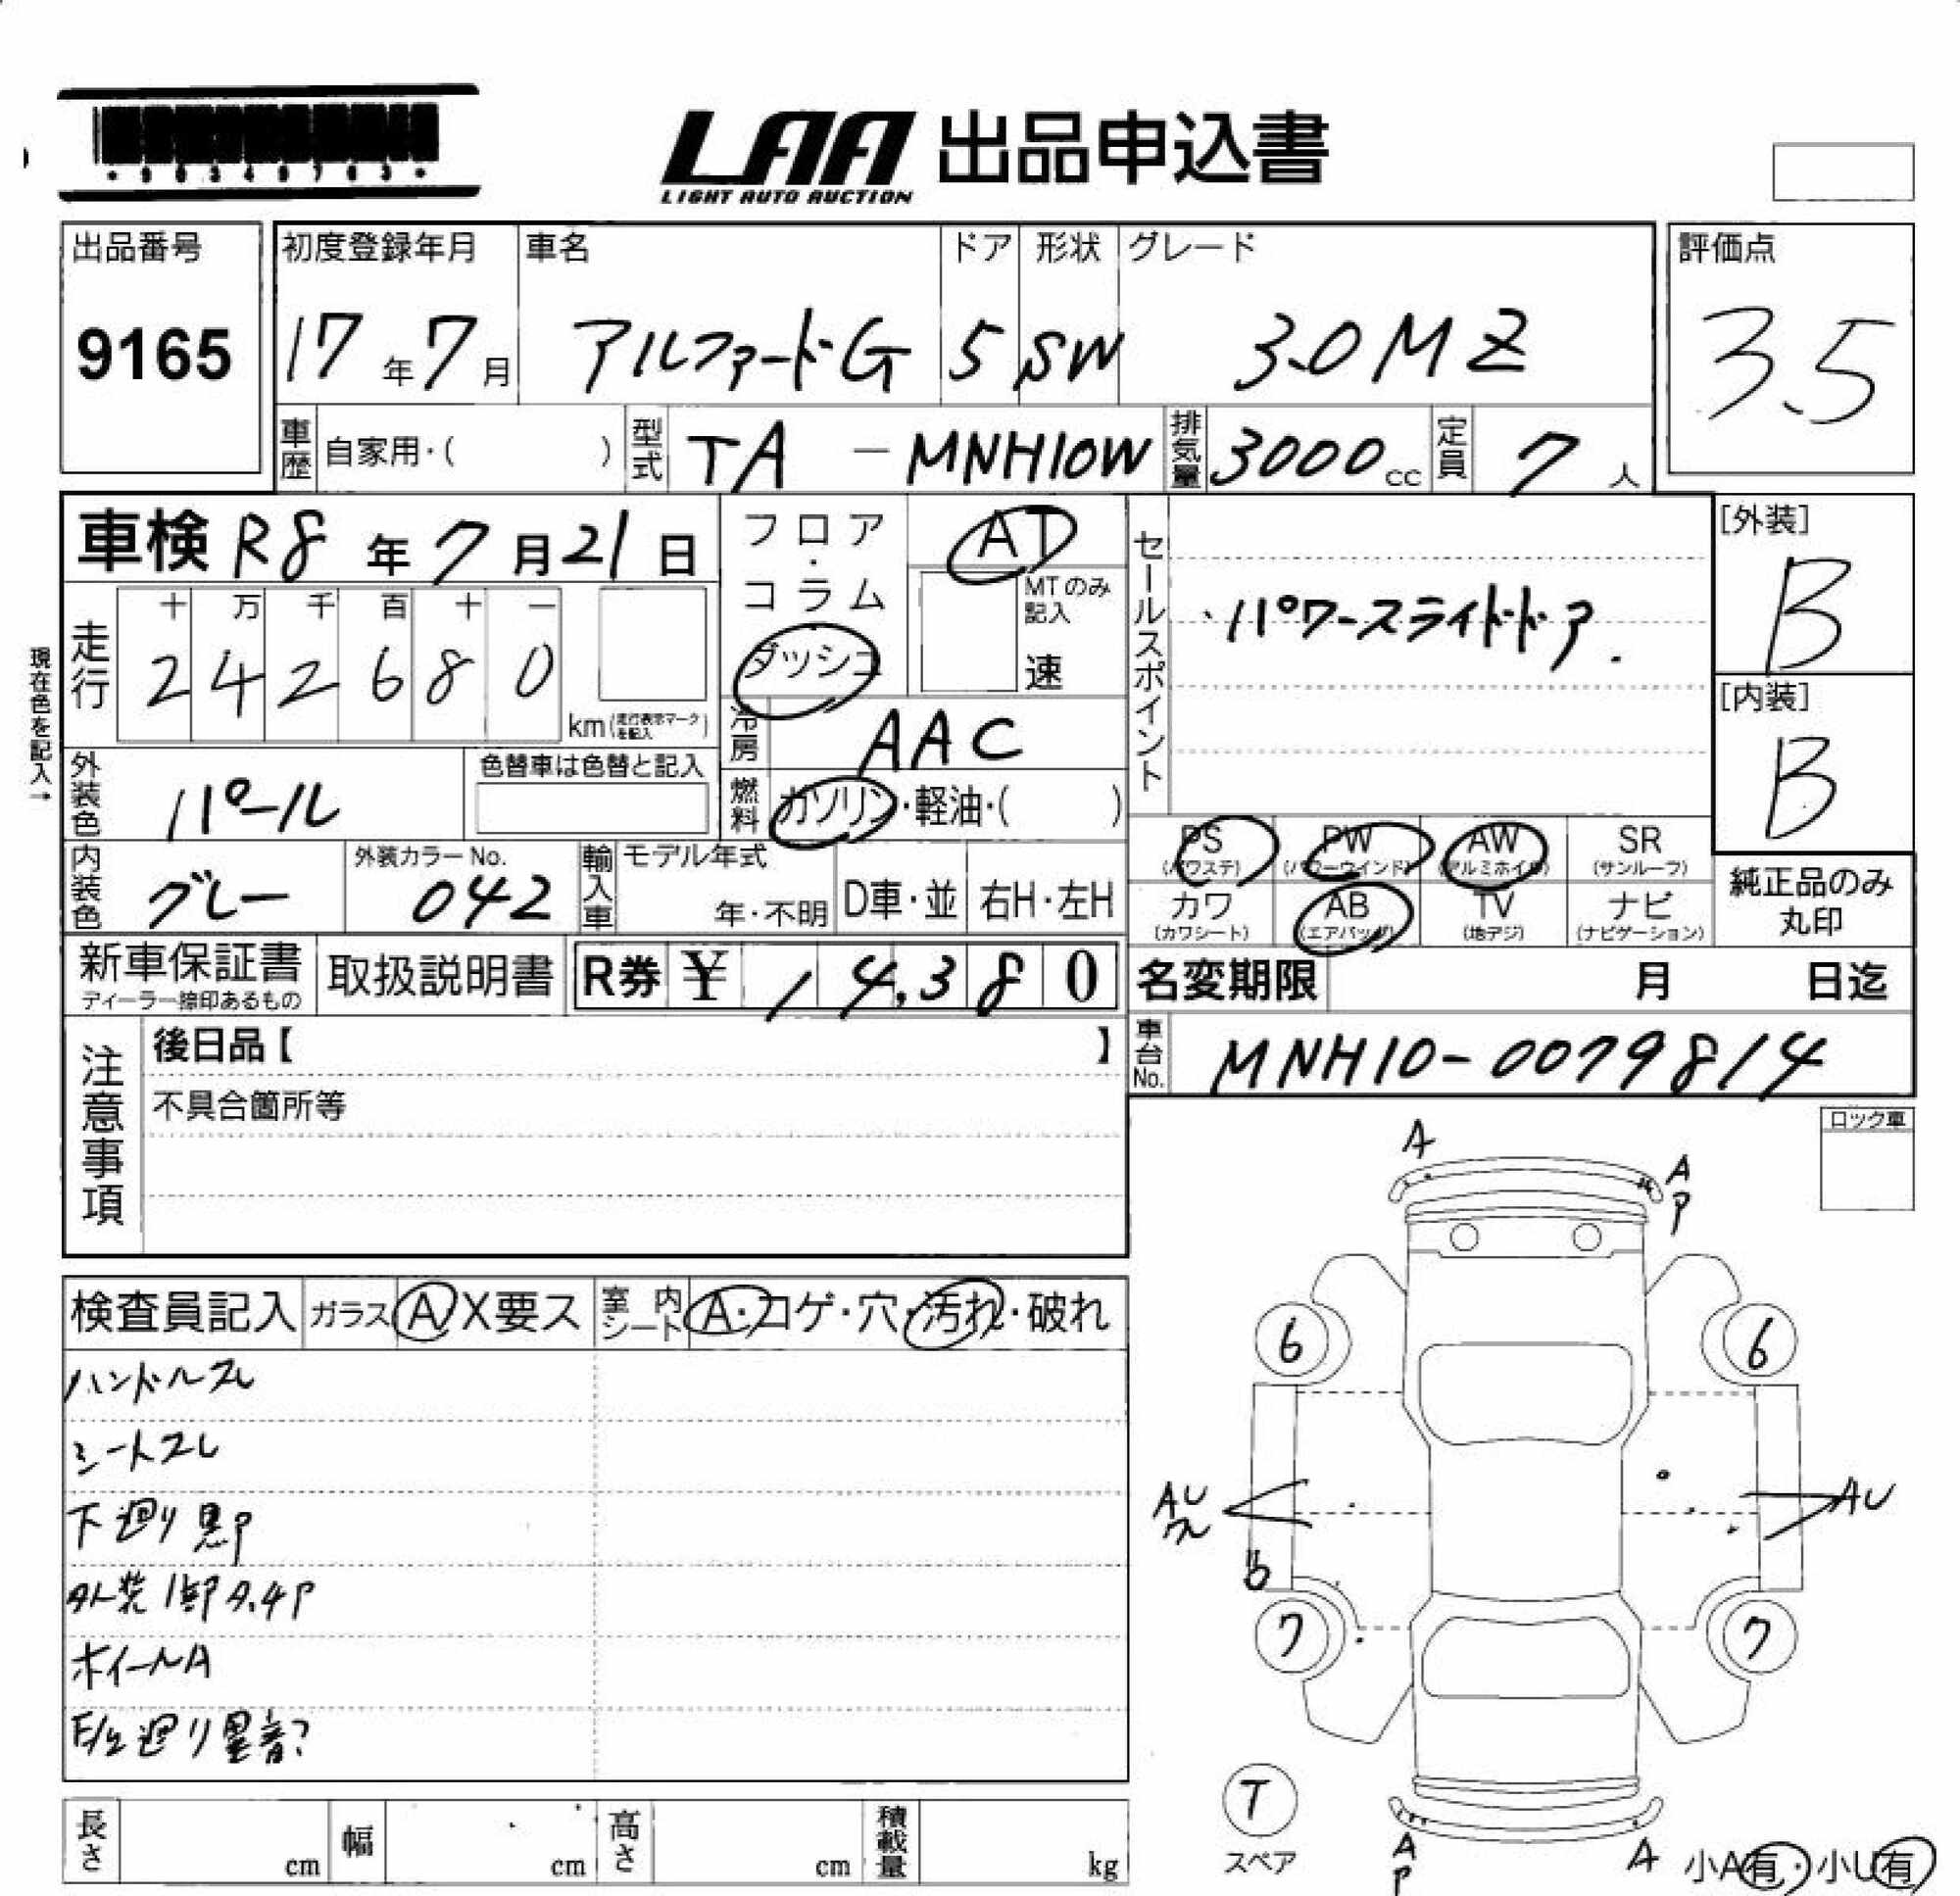 LAA 出品申込書
LIGHT AUTO AUCTION
出品番号
9165
初度登録年月
17年7月
車名
アルファードG
ドア
5
形状
SW
グレード
3.0MZ
評価点
3.5
車歴 自家用・( )
型式 TA - MNH10W
排気量 3000cc
定員 7人
車検 R8年7月21日
フロア・コラム
ダッシュ
AT
MTのみ記入
速
セールスポイント
・パワースライドドア.
[外装]
B
[内装]
B
現在色を記入→
走行
十 万 千 百 十 一
2 4 2 6 8 0
km(走行表示マークを記入)
冷房 AAC
外装色 パール
色替車は色替と記入
燃料 ガソリン・軽油・( )
PS (パワステ)
PW (パワーウインド)
AW (アルミホイル)
SR (サンルーフ)
内装色 グレー
外装カラーNo.
042
輸入車
モデル年式
年・不明
D車・並
右H・左H
カワ (カワシート)
AB (エアバッグ)
TV (地デジ)
ナビ (ナビゲーション)
純正品のみ
丸印
新車保証書
ディーラー捺印あるもの
取扱説明書
R券 ¥ 14,380
名変期限 月 日迄
注意事項
後日品【 】
不具合箇所等
車台No. MNH10-0079814
ロック車
A
A
P
検査員記入
ガラス A X要ス
室内シート A・コゲ・穴・汚れ・破れ
ハンドルスレ
シートスレ
下廻り黒P
外装1部A.4P
ホイールA
廻り異音?
6
6
AU
AU
7
7
T
スペア
A
P
A
小A有・小U有
長さ cm
幅 cm
高さ cm
積載量 kg